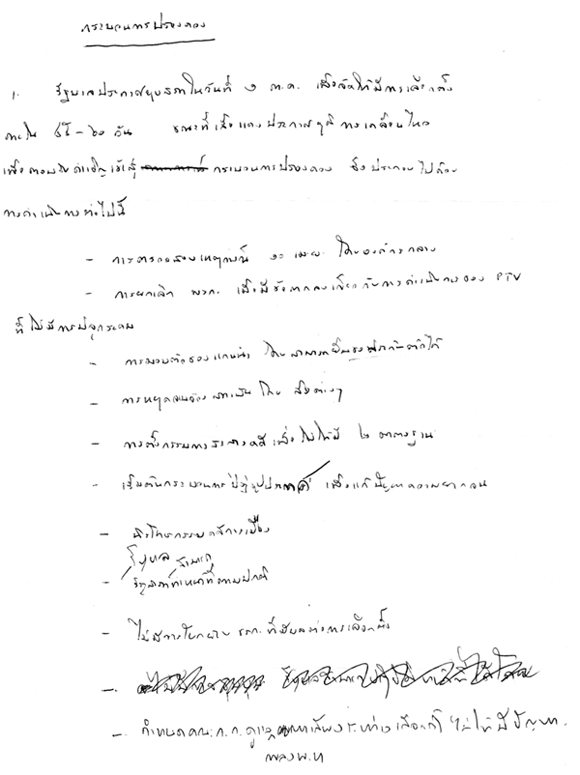 กระบวนการปรองดอง
1. รัฐบาลประกาศยุบสภาในวันที่ ต.ค. เพื่อจัดให้มีการเลือกตั้ง
ภายใน ๔๕ - ๖๐ วัน ขณะที่เสื้อแดงประกาศยุติการเคลื่อนไหว
เพื่อ เข้าสู่ กระบวนการปรองดอง ซึ่งประกอบไปด้วย
การดำเนินการต่อไปนี้
- การตรวจสอบเหตุการณ์ ๑๐ เมย. โดยองค์กรกลาง
- การยกเลิก พรก. เพื่อมีข้อตกลงเกี่ยวกับการดำเนินการของ PTV
ที่ไม่มีการปลุกระดม
- การมอบตัวของแกนนำ โดยสามารถยื่นขอประกันตัวได้
- การหยุด โดย สื่อต่างๆ
- การตั้งกรรมการ คดี เพื่อไม่ให้มี ๒ มาตรฐาน
- เริ่มต้นกระบวนการปฏิรูปประเทศ เพื่อแก้ปัญหาความยากจน
- นิรโทษกรรมคดีการเมือง
- รัฐ ทำหน้าที่ตามปกติ
- ไม่มีการโยกย้าย ขรก. ที่มีผลต่อการเลือกตั้ง
-
- กำหนดคณะ ก.ก. ดูแล ระหว่างเลือกตั้ง ไม่ให้มีปัญหา